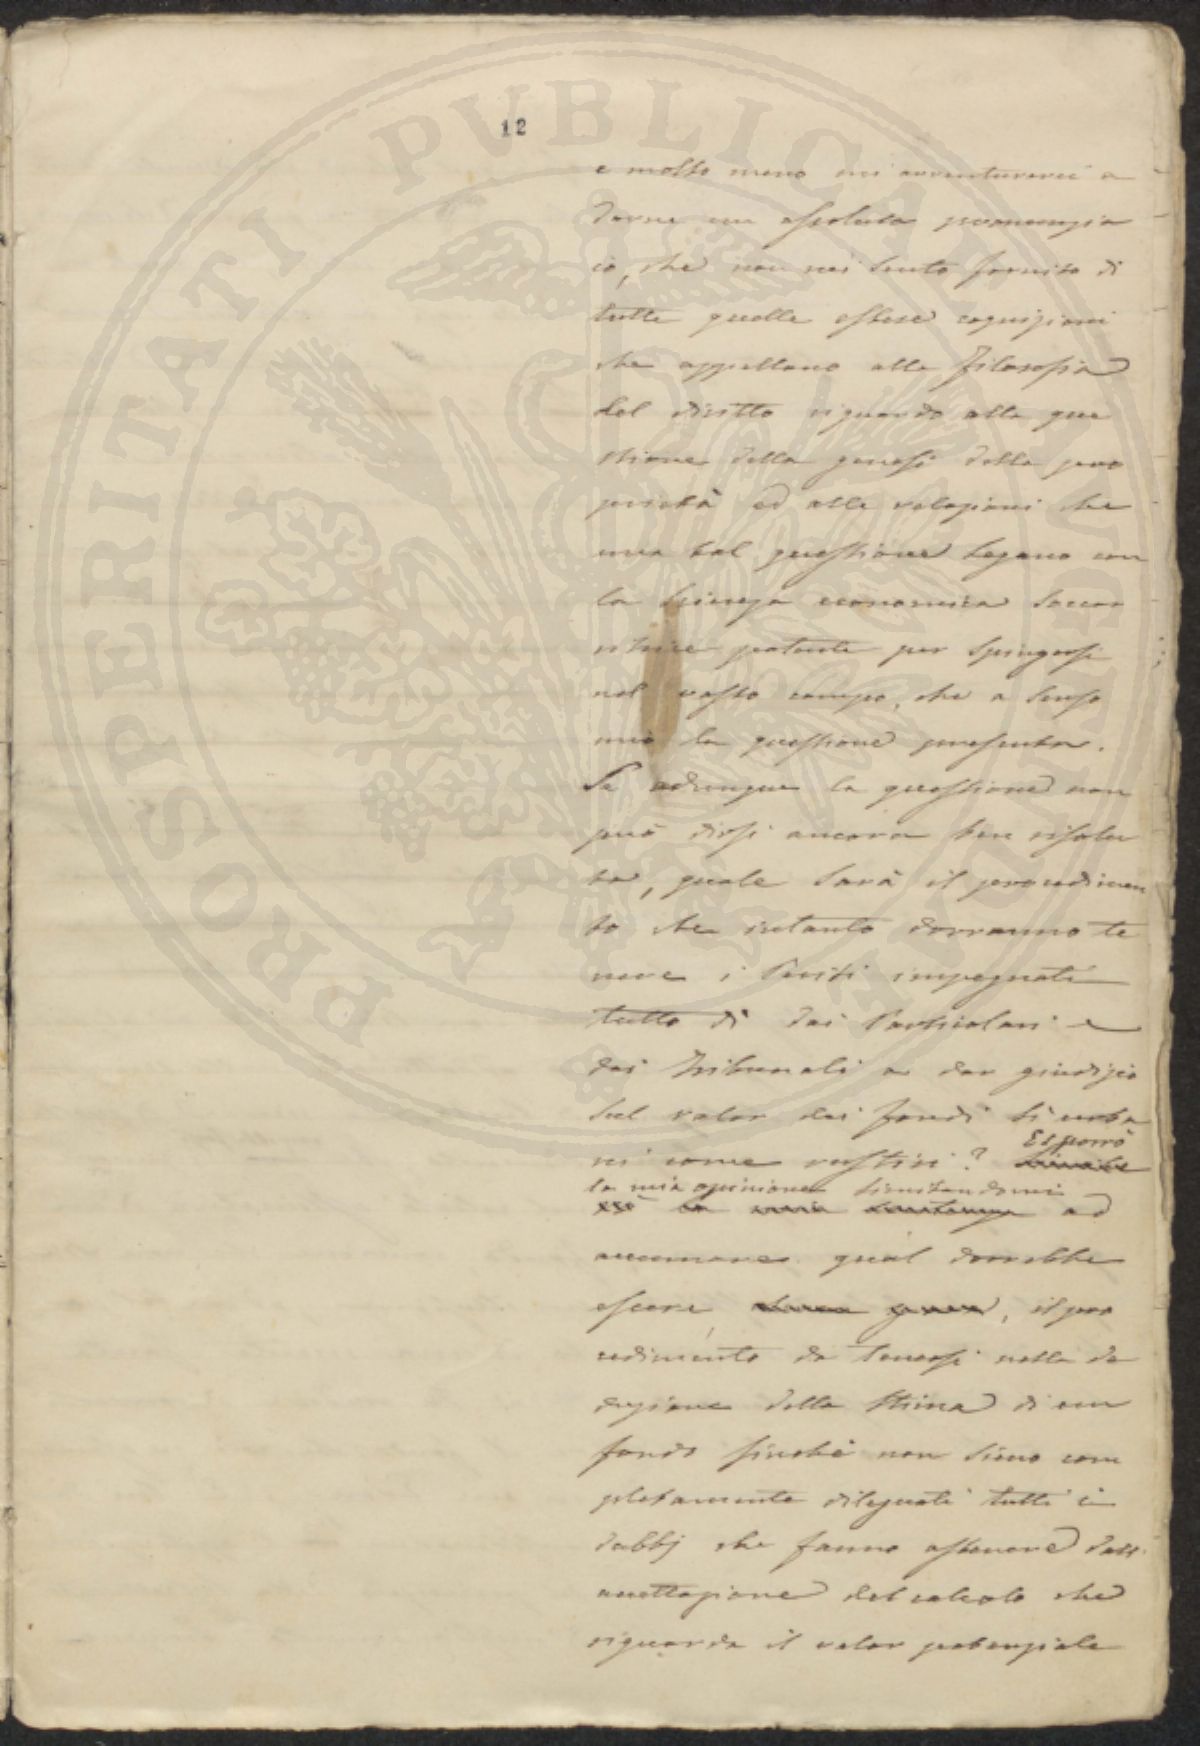 12
PROSPERITATI PVBLICAE AVGENDAE
e molto meno mi avventurerei a
darne un assoluto pronunzia
to, che non mi sento fornito di
tutte quelle estese cognizioni
che appellano alla filosofia
del diritto riguardo alla que
stione della genesi della pro
prietà ed alle relazioni che
una tal questione legano con
la scienza economica soccor
ritrice potente per spingersi
nel vasto campo, che a senso
mio la questione presenta.
Se adunque la questione non
può dirsi ancora ben risolu
ta, quale sarà il procedimen
to che intanto dovranno te
nere i Periti impegnati
tutto dì dai Particolari e
dai Tribunali a dar giudizio
sul valor dei fondi sì urba
ni come rustici? Esporrò
la mia opinione limitandomi
ad
accennare qual dovrebbe
essere, il pro
cedimento da tenersi nella de
duzione della stima di un
fondo finché non sieno com
pletamente dileguati tutti i
dubbj che fanno astenere dall'
accettazione del calcolo che
riguarda il valor potenziale